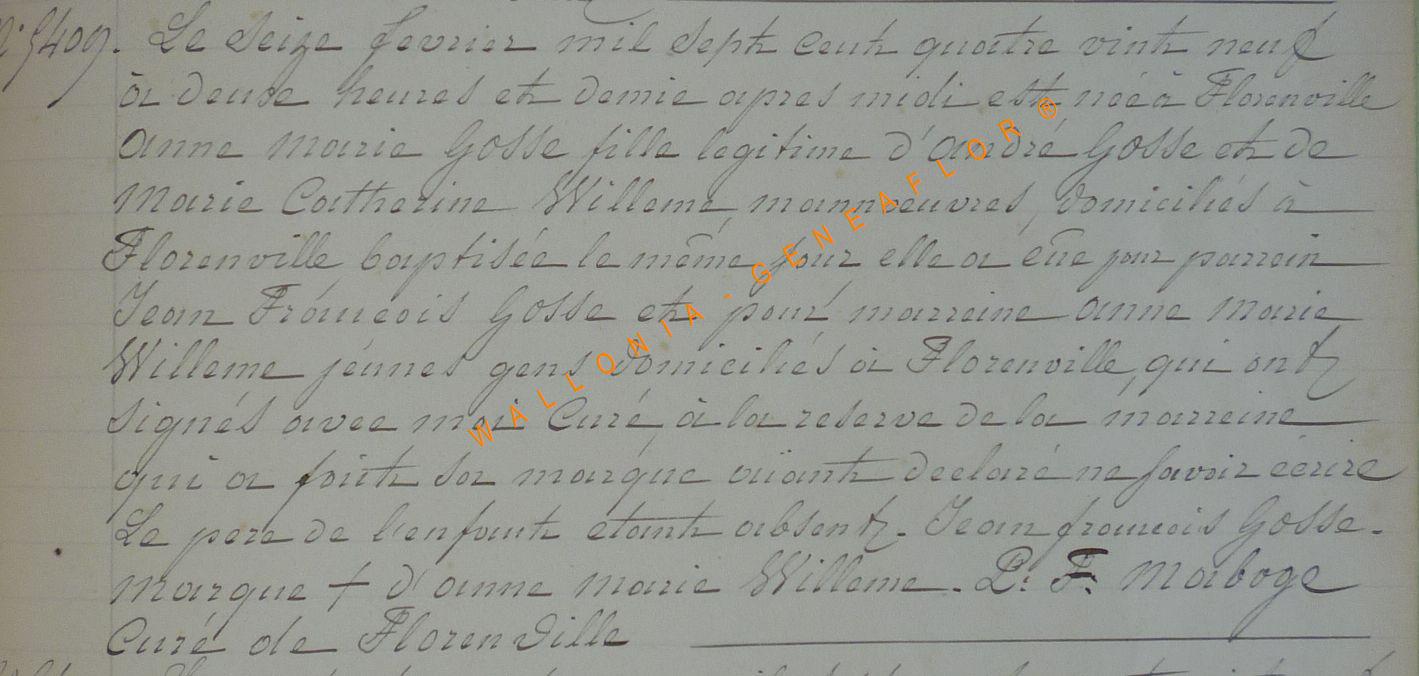 N° 5409. Le Seize fevrier mil sept cent quatre vint neuf
à deuse heures et demie apres midi est née à Florenville
anne marie Gosse fille legitime d'andré Gosse et de
Marie Catherine Willeme, mannoeuvres, domiciliés à
Florenville baptisée le même jour elle a eüe pour parrein
Jean François Gosse et pour marreine anne marie
Willeme jeunes gens domiciliés à Florenville, qui ont
signés avec moi Curé, à la reserve de la marreine
qui a fait sa marque aïant declaré ne savoir écrire
Le pere de l'enfant etant absent. Jean francois Gosse.
marque + d'anne marie Willeme. P. F. Maboge
Curé de Florenville
WALLONIA - GENEAFLOR ®